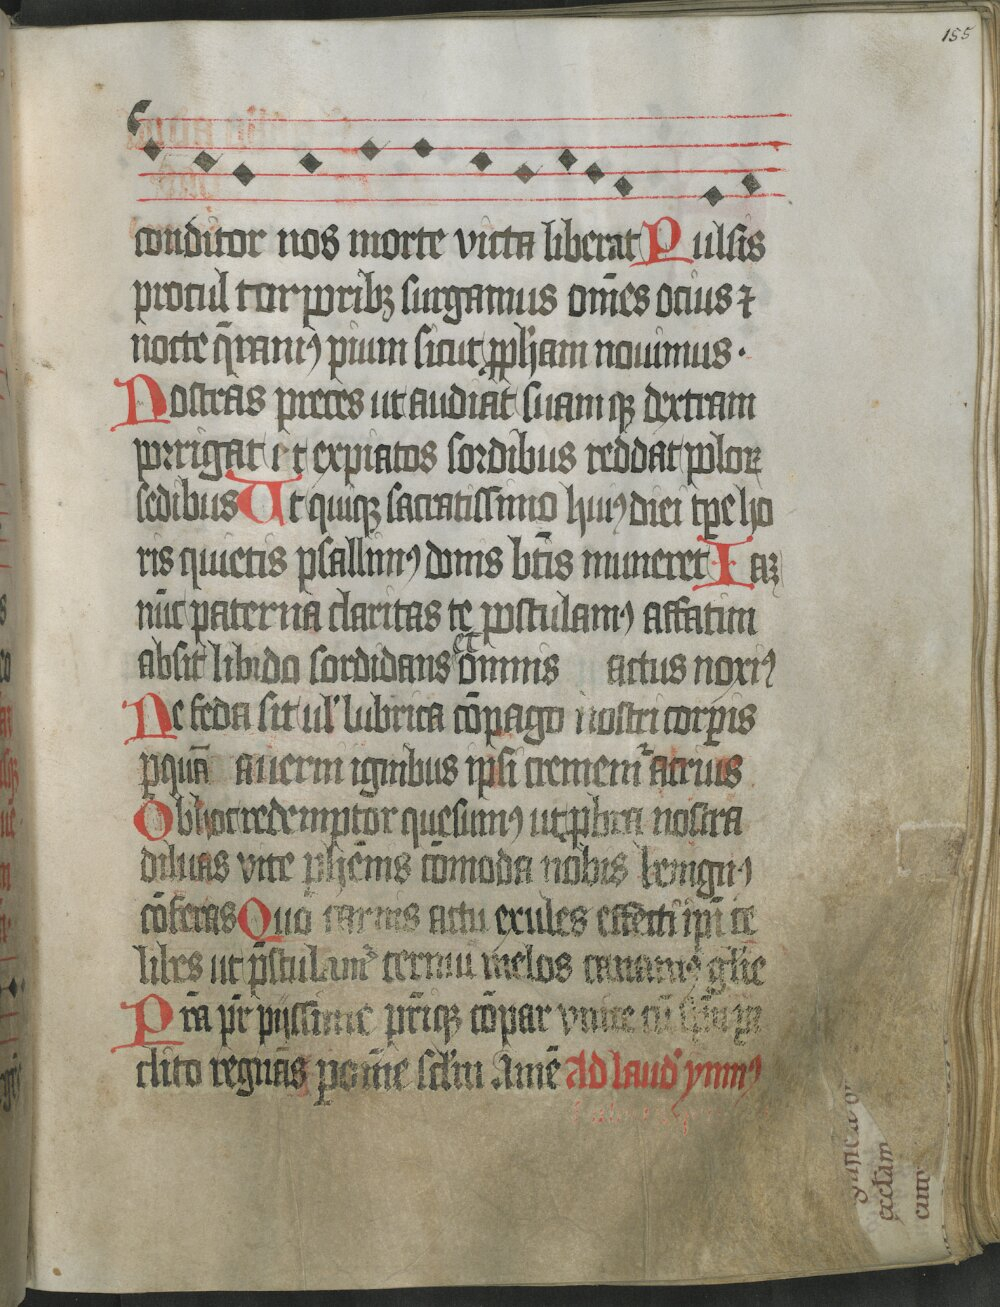 155
conditor nos morte victa liberat Pulsis
procul torporibꝫ surgamus om̄es ocius ⁊
nocte q̄ramꝰ pium sicut ꝓph̄am nouimus ·
Nostras preces ut audiāt suamqꝫ dextram
porrigat et expiatos sordibus reddat poloꝝ
sedibus Ut quiqꝫ sacratissimo huiꝰ diei tp̄e ho
ris quietis psallimꝰ donis b̄tis muneret Iaꝫ
nūc paterna claritas te postulamꝰ affatim
absit libido sordidans et omnis actus noxiꝰ
Ne feda sit ul' lubrica cōpago nostri corꝑis
ꝑ quā auerni ignibus ipsi crememur acrius
Ob hoc redemptor quesumꝰ ut ꝓbra nostra
diluas vite ꝑhēnis cōmoda nobis benignꝰ
cōferas Quo carnis actu exules effecti ip̄i ce
libes ut p̄stulamꝰ cernui melos canamꝰ gl̄ie
Pr̄a pr̄ pijssime pr̄iqꝫ cōpar vnice cū
clito regnās ꝑ om̄e sclm Amē Ad laud' ymnꝰ
ecclam